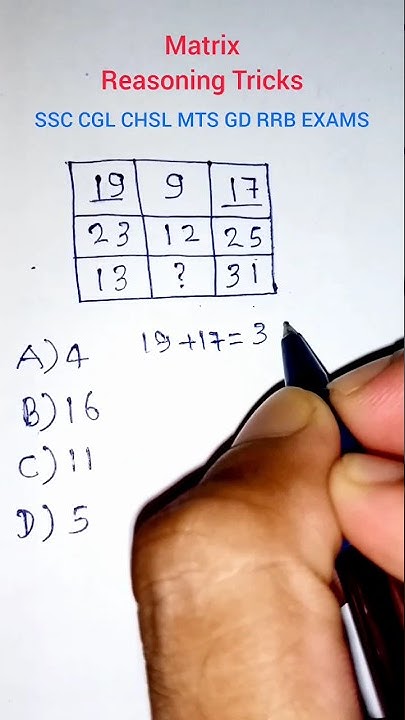 Matrix
Reasoning Tricks
SSC CGL CHSL MTS GD RRB EXAMS
19 9 17
23 12 25
13 ? 31
A) 4
19+17=3
B) 16
C) 11
D) 5